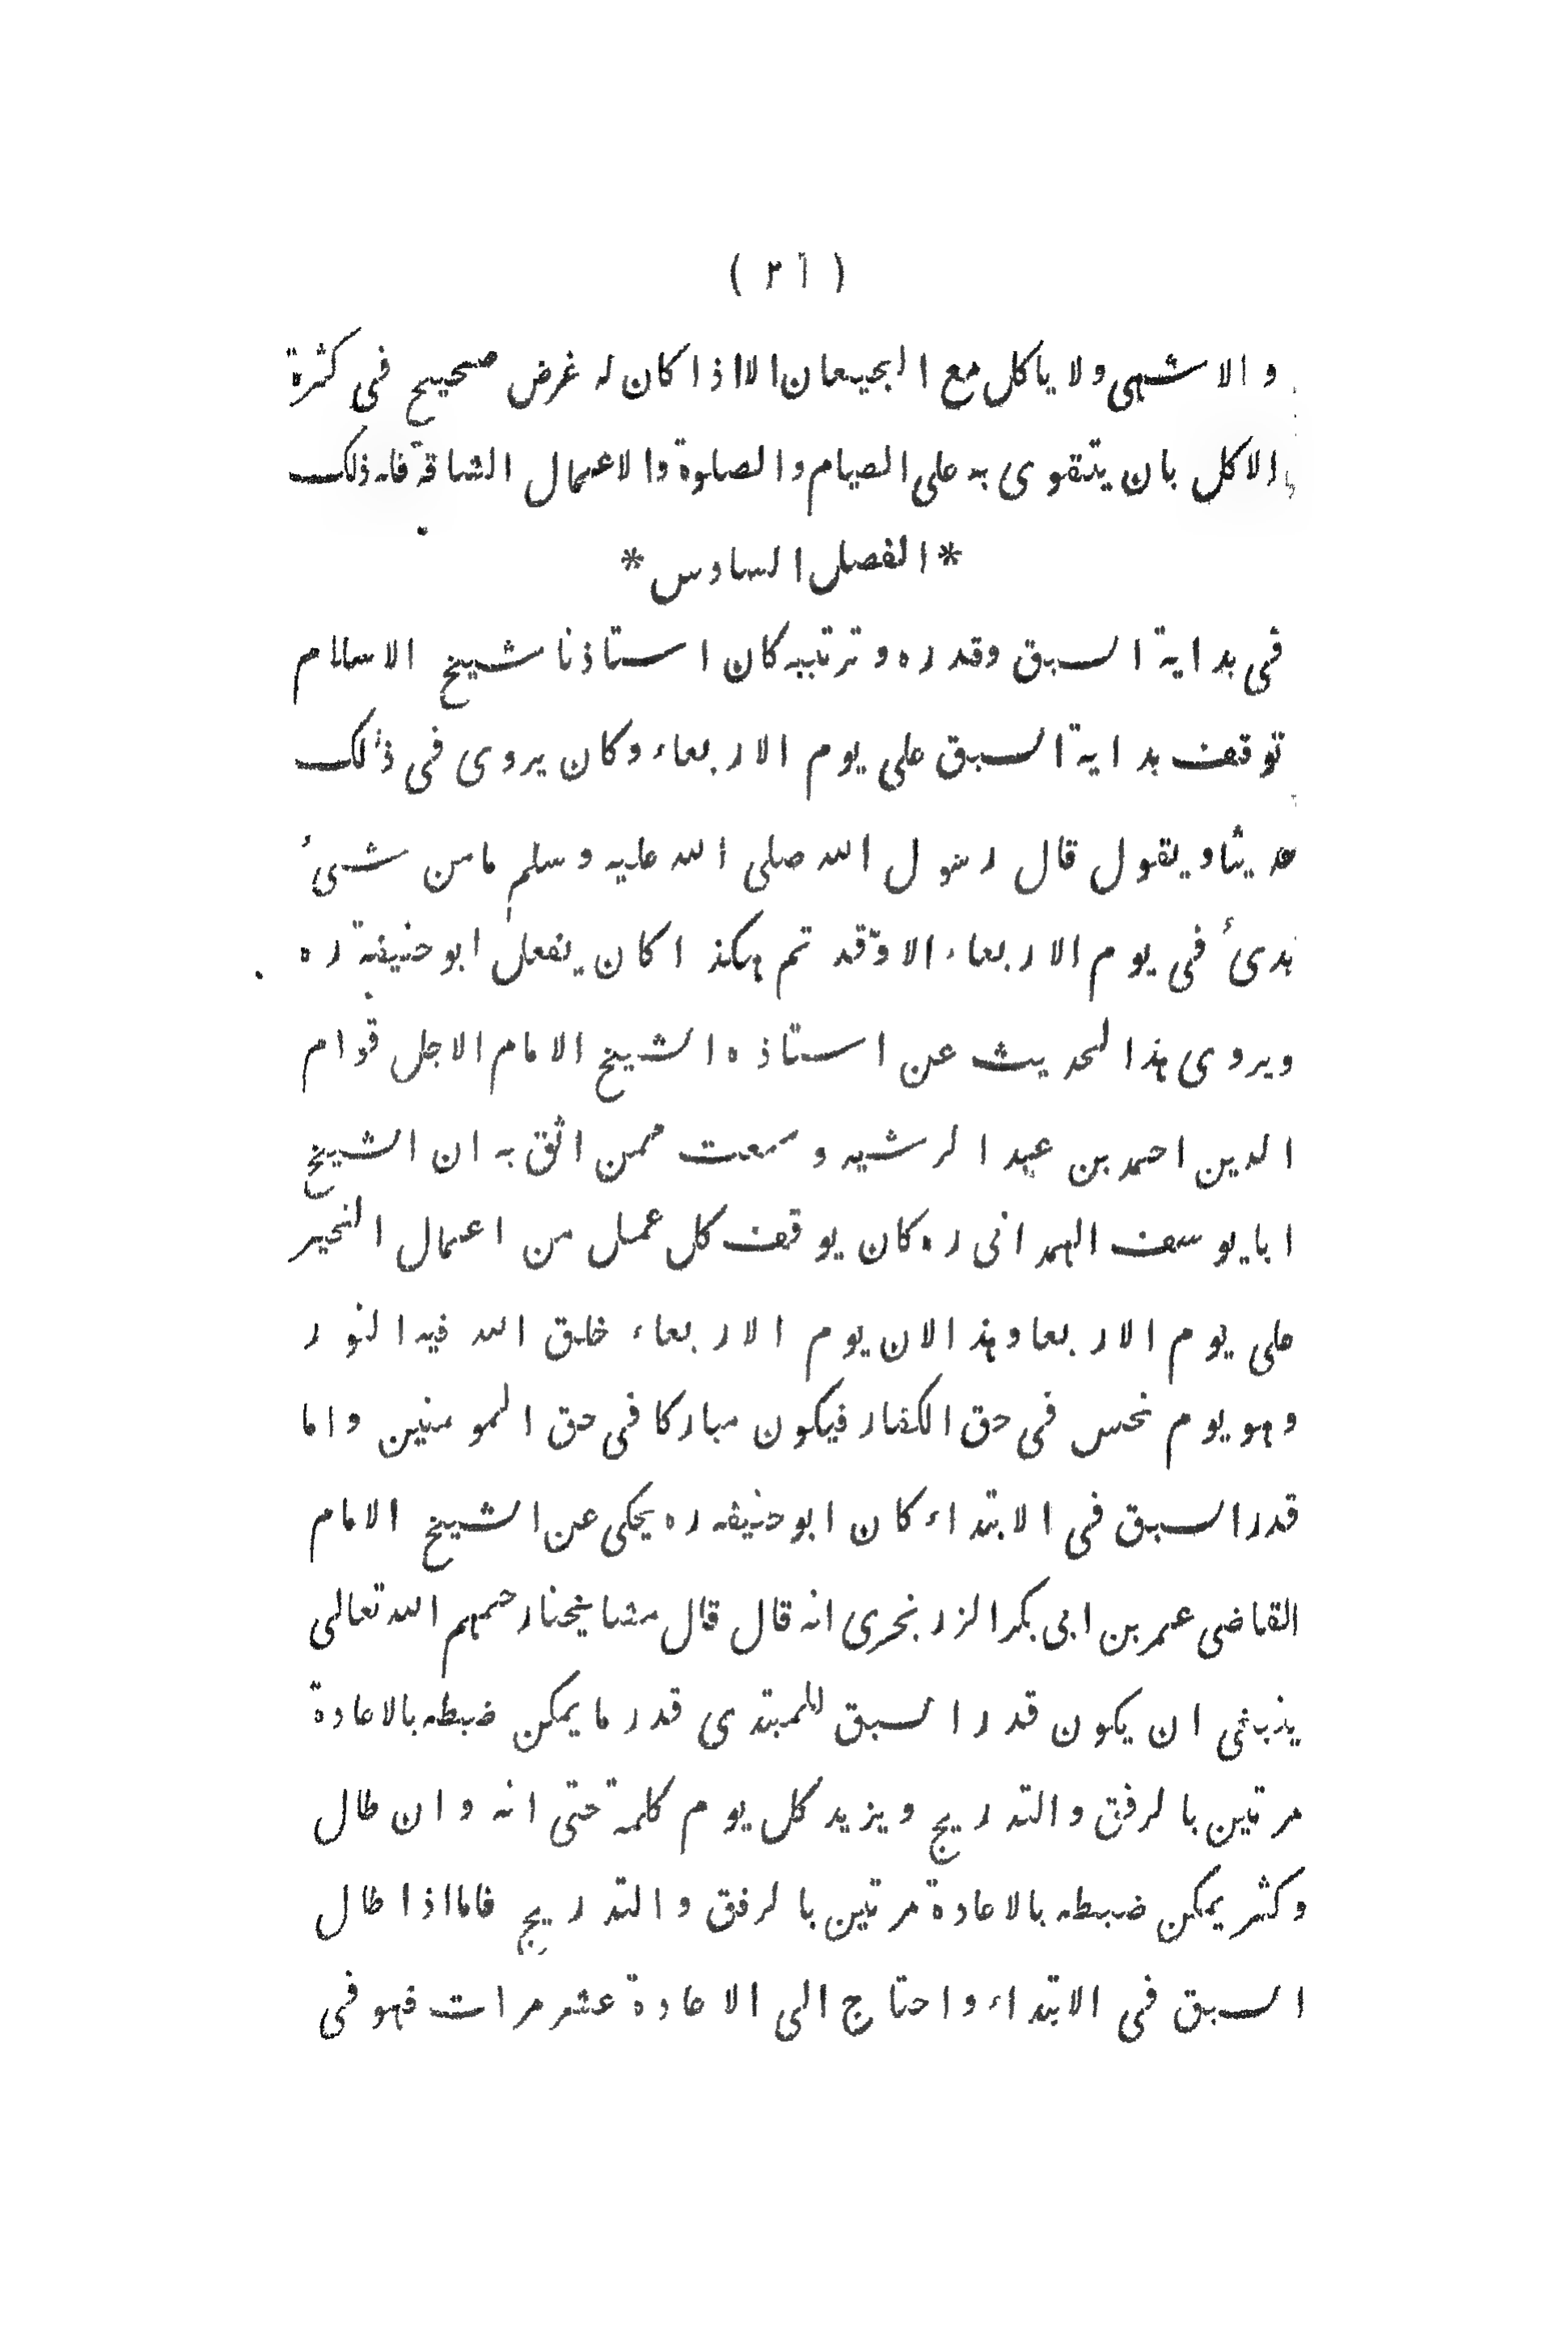 ( ٢١ )
والاشهى ولا ياكل مع الجيعان الا اذا كان له غرض صحيح فى كثرة
الاكل بان يتقوى به على الصيام والصلوة والاعمال الشاقة فله ذلك
* الفصل السادس *
فى بداية السبق وقدره وترتيبه كان استاذنا شيخ الاسلام
توقف بداية السبق على يوم الاربعاء وكان يروى فى ذلك
حديثا ويقول قال رسول الله صلى الله عليه وسلم ما من شئ
بدئ فى يوم الاربعاء الا وقد تم هكذا كان يفعل ابو حنيفة ره
ويروى هذا الحديث عن استاذه الشيخ الامام الاجل قوام
الدين احمد بن عبد الرشيد وسمعت ممن اثق به ان الشيخ
ابا يوسف الهمدانى ره كان يوقف كل عمل من اعمال الخير
على يوم الاربعا وهذا لان يوم الاربعاء خلق الله فيه النور
وهو يوم نحس فى حق الكفار فيكون مباركا فى حق المومنين واما
قدر السبق فى الابتداء كان ابو حنيفه ره يحكى عن الشيخ الامام
القاضى عمر بن ابى بكر الزرنجرى انه قال قال مشايخنا رحمهم الله تعالى
ينبغى ان يكون قدر السبق للمبتدى قدر ما يمكن ضبطه بالاعادة
مرتين بالرفق والتدريج ويزيد كل يوم كلمة حتى انه وان طال
وكثر يمكن ضبطه بالاعادة مرتين بالرفق والتدريج فاما اذا طال
السبق فى الابتداء واحتاج الى الاعادة عشر مرات فهو فى